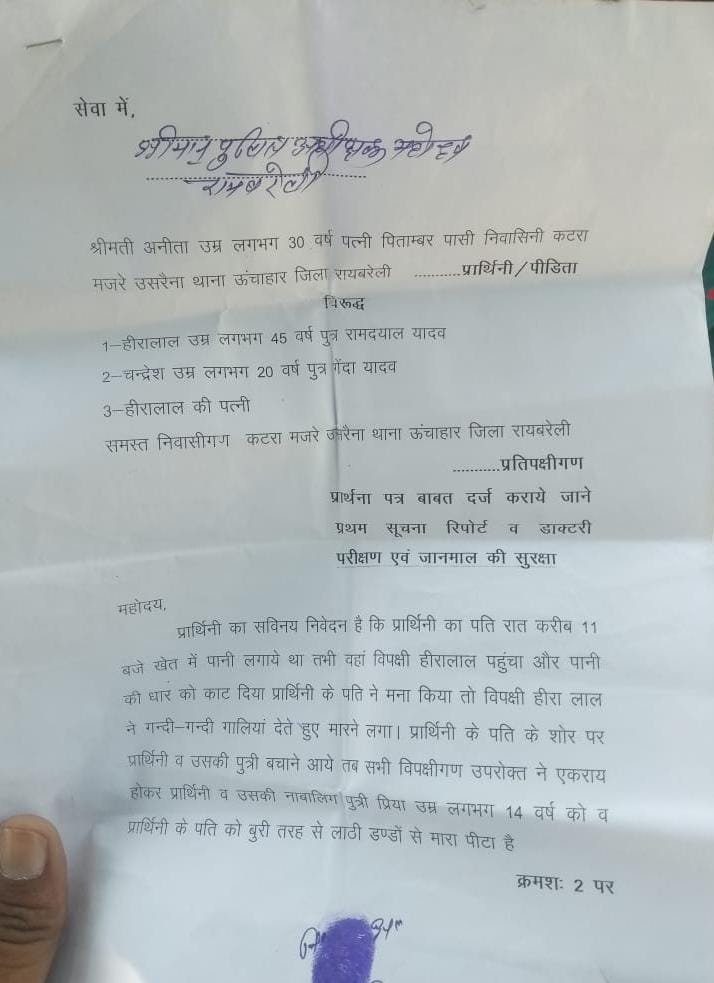 सेवा में,
श्रीमान पुलिस अधीक्षक महोदय
रायबरेली
श्रीमती अनीता उम्र लगभग 30 वर्ष पत्नी पिताम्बर पासी निवासिनी कटरा
मजरे उसरैना थाना ऊंचाहार जिला रायबरेली ...........प्रार्थिनी/पीडिता
विरूद्ध
1–हीरालाल उम्र लगभग 45 वर्ष पुत्र रामदयाल यादव
2–चन्द्रेश उम्र लगभग 20 वर्ष पुत्र गेंदा यादव
3–हीरालाल की पत्नी
समस्त निवासीगण कटरा मजरे उसरैना थाना ऊंचाहार जिला रायबरेली
...........प्रतिपक्षीगण
प्रार्थना पत्र बाबत दर्ज कराये जाने
प्रथम सूचना रिपोर्ट व डाक्टरी
परीक्षण एवं जानमाल की सुरक्षा
महोदय,
प्रार्थिनी का सविनय निवेदन है कि प्रार्थिनी का पति रात करीब 11
बजे खेत में पानी लगाये था तभी वहां विपक्षी हीरालाल पहुंचा और पानी
की धार को काट दिया प्रार्थिनी के पति ने मना किया तो विपक्षी हीरा लाल
ने गन्दी–गन्दी गालियां देते हुए मारने लगा। प्रार्थिनी के पति के शोर पर
प्रार्थिनी व उसकी पुत्री बचाने आये तब सभी विपक्षीगण उपरोक्त ने एकराय
होकर प्रार्थिनी व उसकी नाबालिग पुत्री प्रिया उम्र लगभग 14 वर्ष को व
प्रार्थिनी के पति को बुरी तरह से लाठी डण्डों से मारा पीटा है
क्रमशः 2 पर